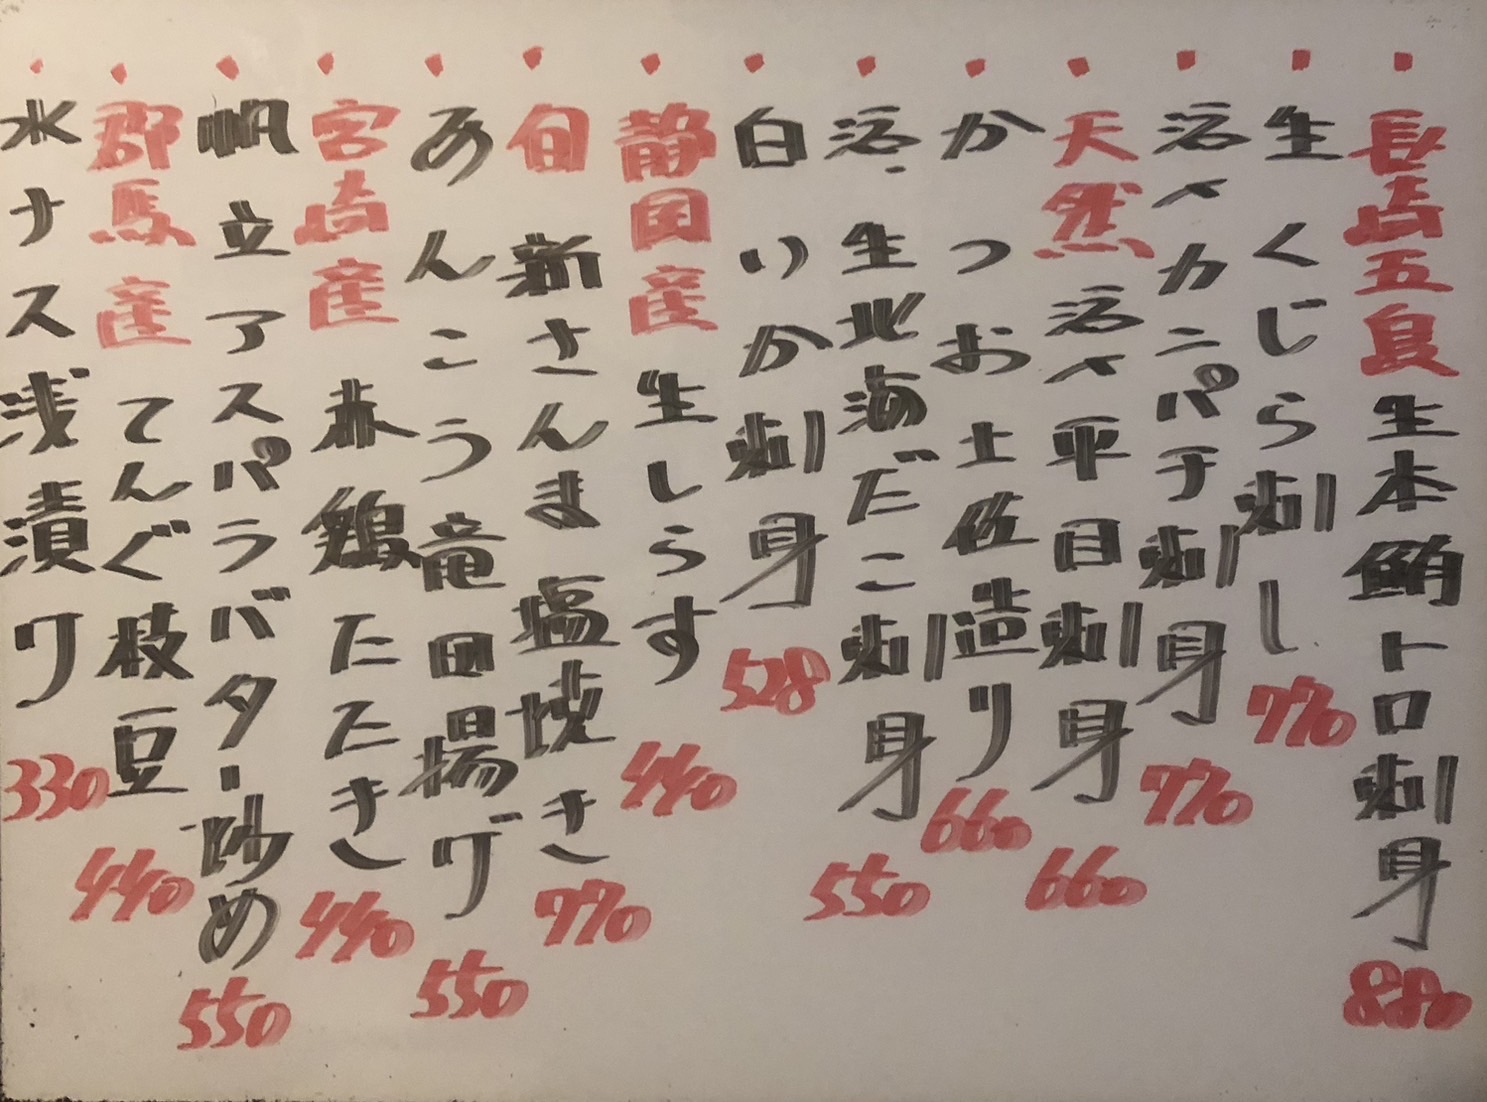 長崎五島生本鮪トロ刺身 880
生くじら刺し 770
活〆カニパチ刺身 770
天然活〆平目刺身 660
かつお土佐造り 660
活・生北海だこ刺身 550
白いか刺身 528
静岡産生しらす 440
旬新さんま塩焼き 770
あんこう竜田揚げ 550
宮崎産赤鶏たたき 440
帆立アスパラバター炒め 550
郡馬産てんぐ枝豆 440
水ナス浅漬り 330